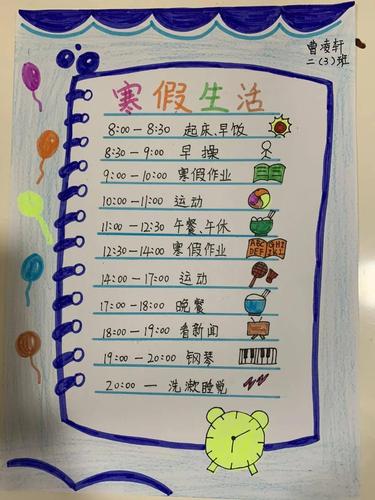 曹凌轩
二(3)班
寒假生活
8:00 — 8:30 起床、早饭
8:30 — 9:00 早操
9:00 — 10:00 寒假作业
10:00 — 11:00 运动
11:00 — 12:30 午餐、午休
12:30 — 14:00 寒假作业
ABC GHI
DEF JKL
14:00 — 17:00 运动
17:00 — 18:00 晚餐
18:00 — 19:00 看新闻
19:00 — 20:00 钢琴
20:00 — 洗漱睡觉